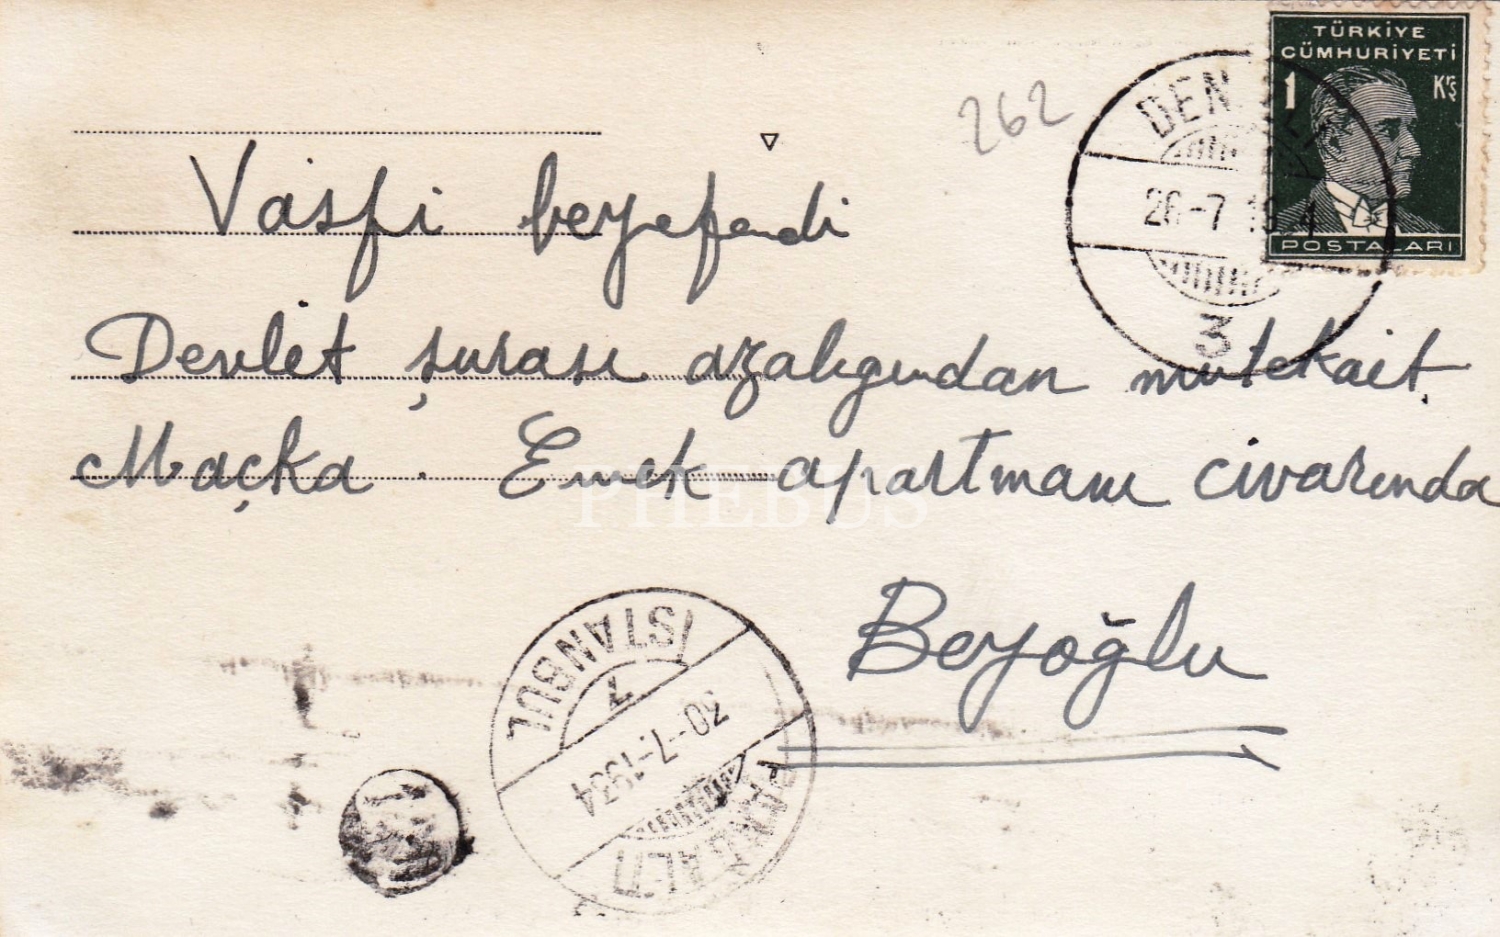 262
TÜRKİYE
CÜMHURİYETİ
1 Krş
POSTALARI
26-7
3
Vasfi beyefendi
Devlet şurası azalığından mutekait
Maçka . Emek apartmanı civarında
PHEBUS
Beyoğlu
İSTANBUL
7
30-7-1934